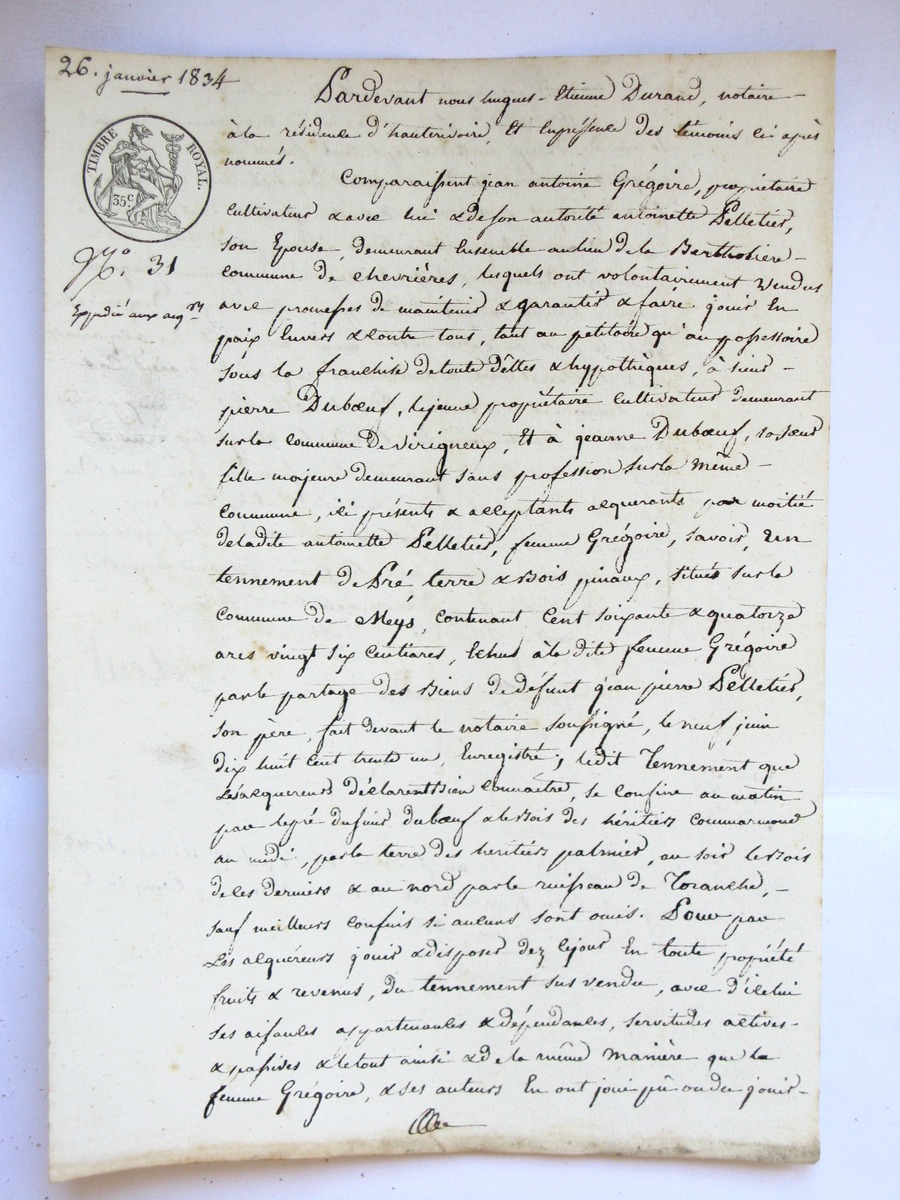 26. janvier 1834
TIMBRE ROYAL.
35c
No. 31
Expédié aux acqrs
Pardevant nous hugues-Etienne Durand, notaire
à la résidence d'hauterivoire, Et En présence des témoins ci après
nommés.
Comparaissent jean antoine Grégoire, propriétaire
cultivateur & avec lui & de son autorité antoinette Pelletier,
son Epouse, demeurant Ensemble au lieu de la Bertholière
commune de chevrières, lesquels ont volontairement vendus
avec promesses de maintenir & garantir & faire jouir En
paix Envers & contre tous, tant au petitoire qu'au possessoire
sous la franchise de toute dettes & hypothèques, à sieur
pierre Dubœuf, lejeune propriétaire cultivateur demeurant
sur la commune de virigneux, Et à jeanne Dubœuf, sa sœur
fille majeure demeurant sans profession sur la même
commune, ici présents & acceptants acquerants par moitié
de ladite antoinette Pelletier, femme Grégoire, savoir, un
tennement de Pré, terre & Bois pinaux, situés sur la
commune de Meys, contenant cent soixante & quatorze
ares vingt six centiares, Echus à la dite femme Grégoire
par le partage des Biens de défunt jean pierre Pelletier,
son père, fait devant le notaire soussigné, le neuf juin
dix huit cent trente un, Enregistré; ledit Tennement que
Les acquereurs déclarent bien connaitre, se confine au matin
par le pré du sieur duboeuf & le Bois des héritiers Commarmond
au midi, par la terre des heritiers palmier, au soir le Bois
de ces derniers & au nord par le ruisseau de Toranche,
sauf meilleurs confins si aucuns sont omis. Pour par
Les acquéreurs jouir & disposer dez cejour En toute propriété
fruits & revenus, du tennement sus vendu, avec d'icelui
ses aisances appartenances & dépendances, servitudes actives
& passives & le tout ainsi & de la même manière que la
femme Grégoire, & ses auteurs En ont joui pû ou du jouir